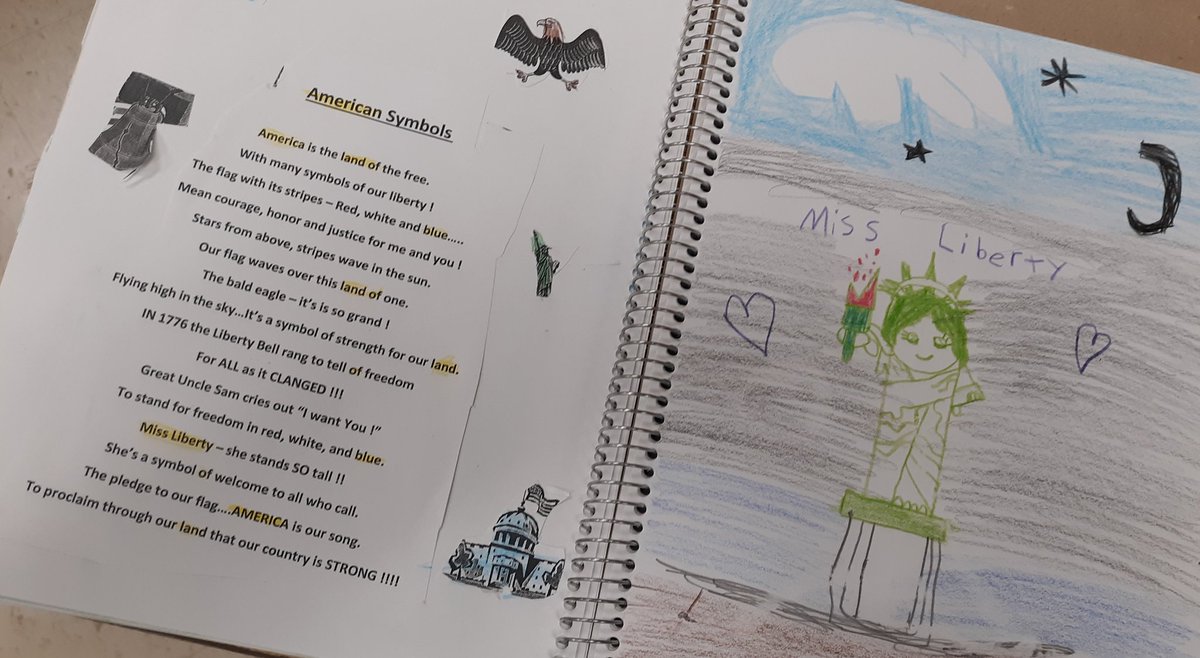 American Symbols
America is the land of the free.
With many symbols of our liberty !
The flag with its stripes – Red, white and blue.....
Mean courage, honor and justice for me and you !
Stars from above, stripes wave in the sun.
Our flag waves over this land of one.
The bald eagle – it's is so grand !
Flying high in the sky...It's a symbol of strength for our land.
IN 1776 the Liberty Bell rang to tell of freedom
For ALL as it CLANGED !!!
Great Uncle Sam cries out “I want You !”
To stand for freedom in red, white, and blue.
Miss Liberty – she stands SO tall !!
She's a symbol of welcome to all who call.
The pledge to our flag....AMERICA is our song.
To proclaim through our land that our country is STRONG !!!!
Miss Liberty